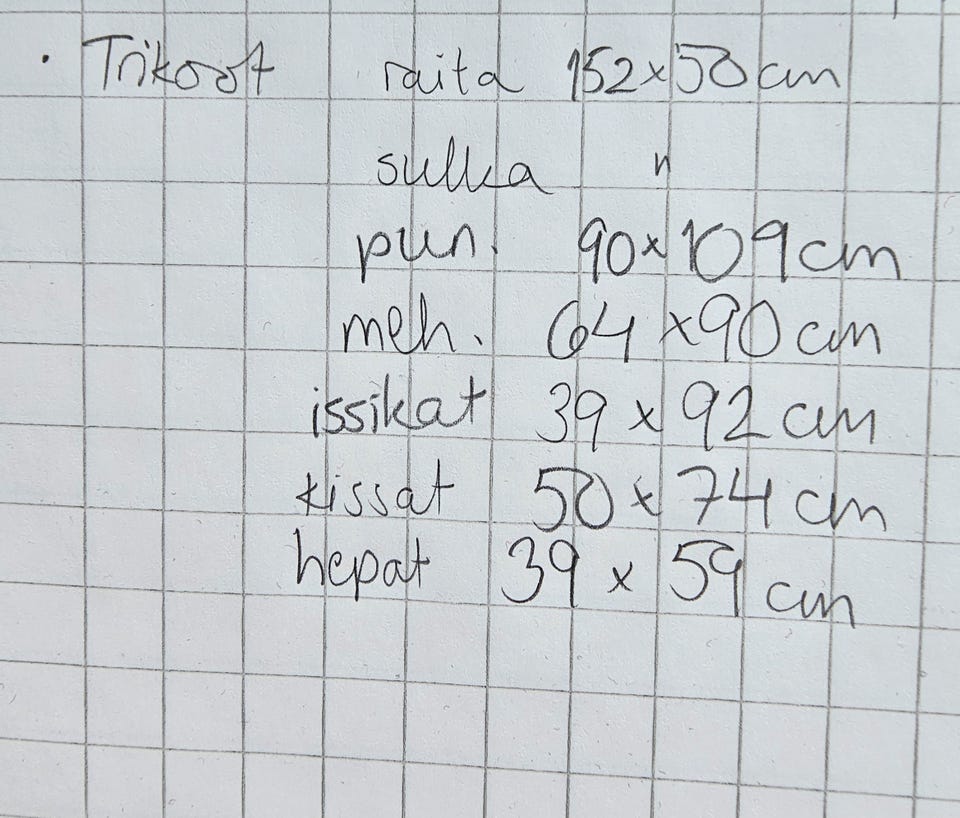 · Trikoot raita 152x50 cm
sulka "
pun. 90x109 cm
meh. 64 x90 cm
issikat 39 x 92 cm
kissat 50 x 74 cm
hepat 39 x 59 cm